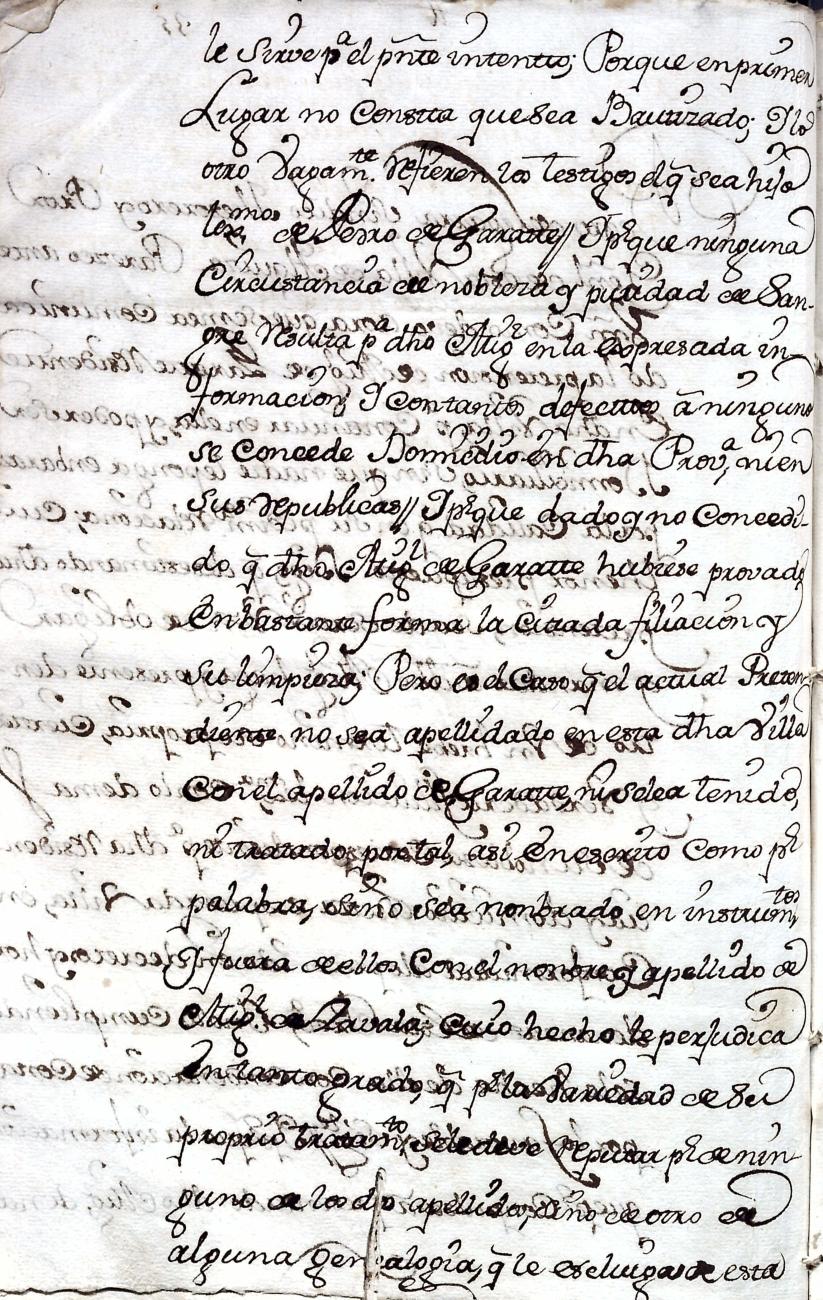 le sirve pª el pñte intentto; Porque en primer
Lugar no Constta que sea Bautizado; I lo
otro Vagamte. Refieren los testigos el q̃ sea hijo
lexmo. de Pedro de Garatte// I pr que ninguna
Circustancia de nobleza y puridad de San-
gre Resulta pª dho Migl en la expresada in-
formacion; I con tantos defecttos â ninguno
se Concede Domicilio en dha Provª, ni en
sus Republicas// I pr que dado y no Concedi-
do q̃ dho Migl de Garatte hubiese provado
en bastante forma la Citada filiacion y
su limpieza; Pero es el Caso q̃ el actual Preten-
diente no sea apellidado en esta dha Villa
Con el apellido de Garatte, ni se lea tenido,
ni tratado por tal, asi en escrito como pr
palabra, sino sea nonbrado en instrumtos,
I fuera de ellos Con el nonbre y apellido de
Migl. de Zavala; Cuio hecho le perjudica
en tanto grado, q̃ pr la Variedad de su
proprio tratamto, se le deve Reputar pr de nin-
guno de los dos apellidos, sino de otro de
alguna genealogia, q̃ le escluiga de esta